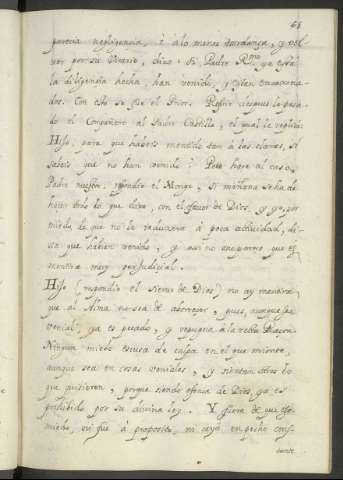 68
parecia negligencia, ò à lo menos tardança, y vol-
por su Vicario, dixo: Si Padre R.mo ya està
la diligencia hecha, han venido, y estan
dos. Con esto se fue el Prior. Refirió despues lo passa-
do el Compañero al Padre Castilla, el qual le replicò:
Hijo, para que habeis mentido tan à las claras, si
sabeis que no han venido? Poco hace al caso,
Padre nuestro, respondio el Monge, si mañana se ha de
hacer todo lo que dixe, con el favor de Dios, y yo, por
miedo de que no lo reduxera à poca actividad, di-
xe que habian venido, y assi no me parece que es
mentira muy perjudicial.
Hijo (respondio el siervo de Dios) no ay mentira
que al Alma no sea de aborrecer, pues, aunque sea
venial, ya es pecado, y repugna à la recta
Ningun miedo escusa de culpa en el que miente,
aunque sea en cosas veniales, y sientan otros lo
que quisieren, porque siendo ofensa de Dios, ya es
prohibido por su divina ley. Y fuera de que esse
miedo, ni fue à proposito, ni cayò en pecho cons-
tante